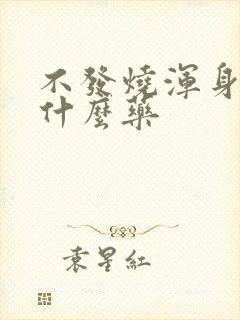 不發燒渾身
什麼藥
袁星紅